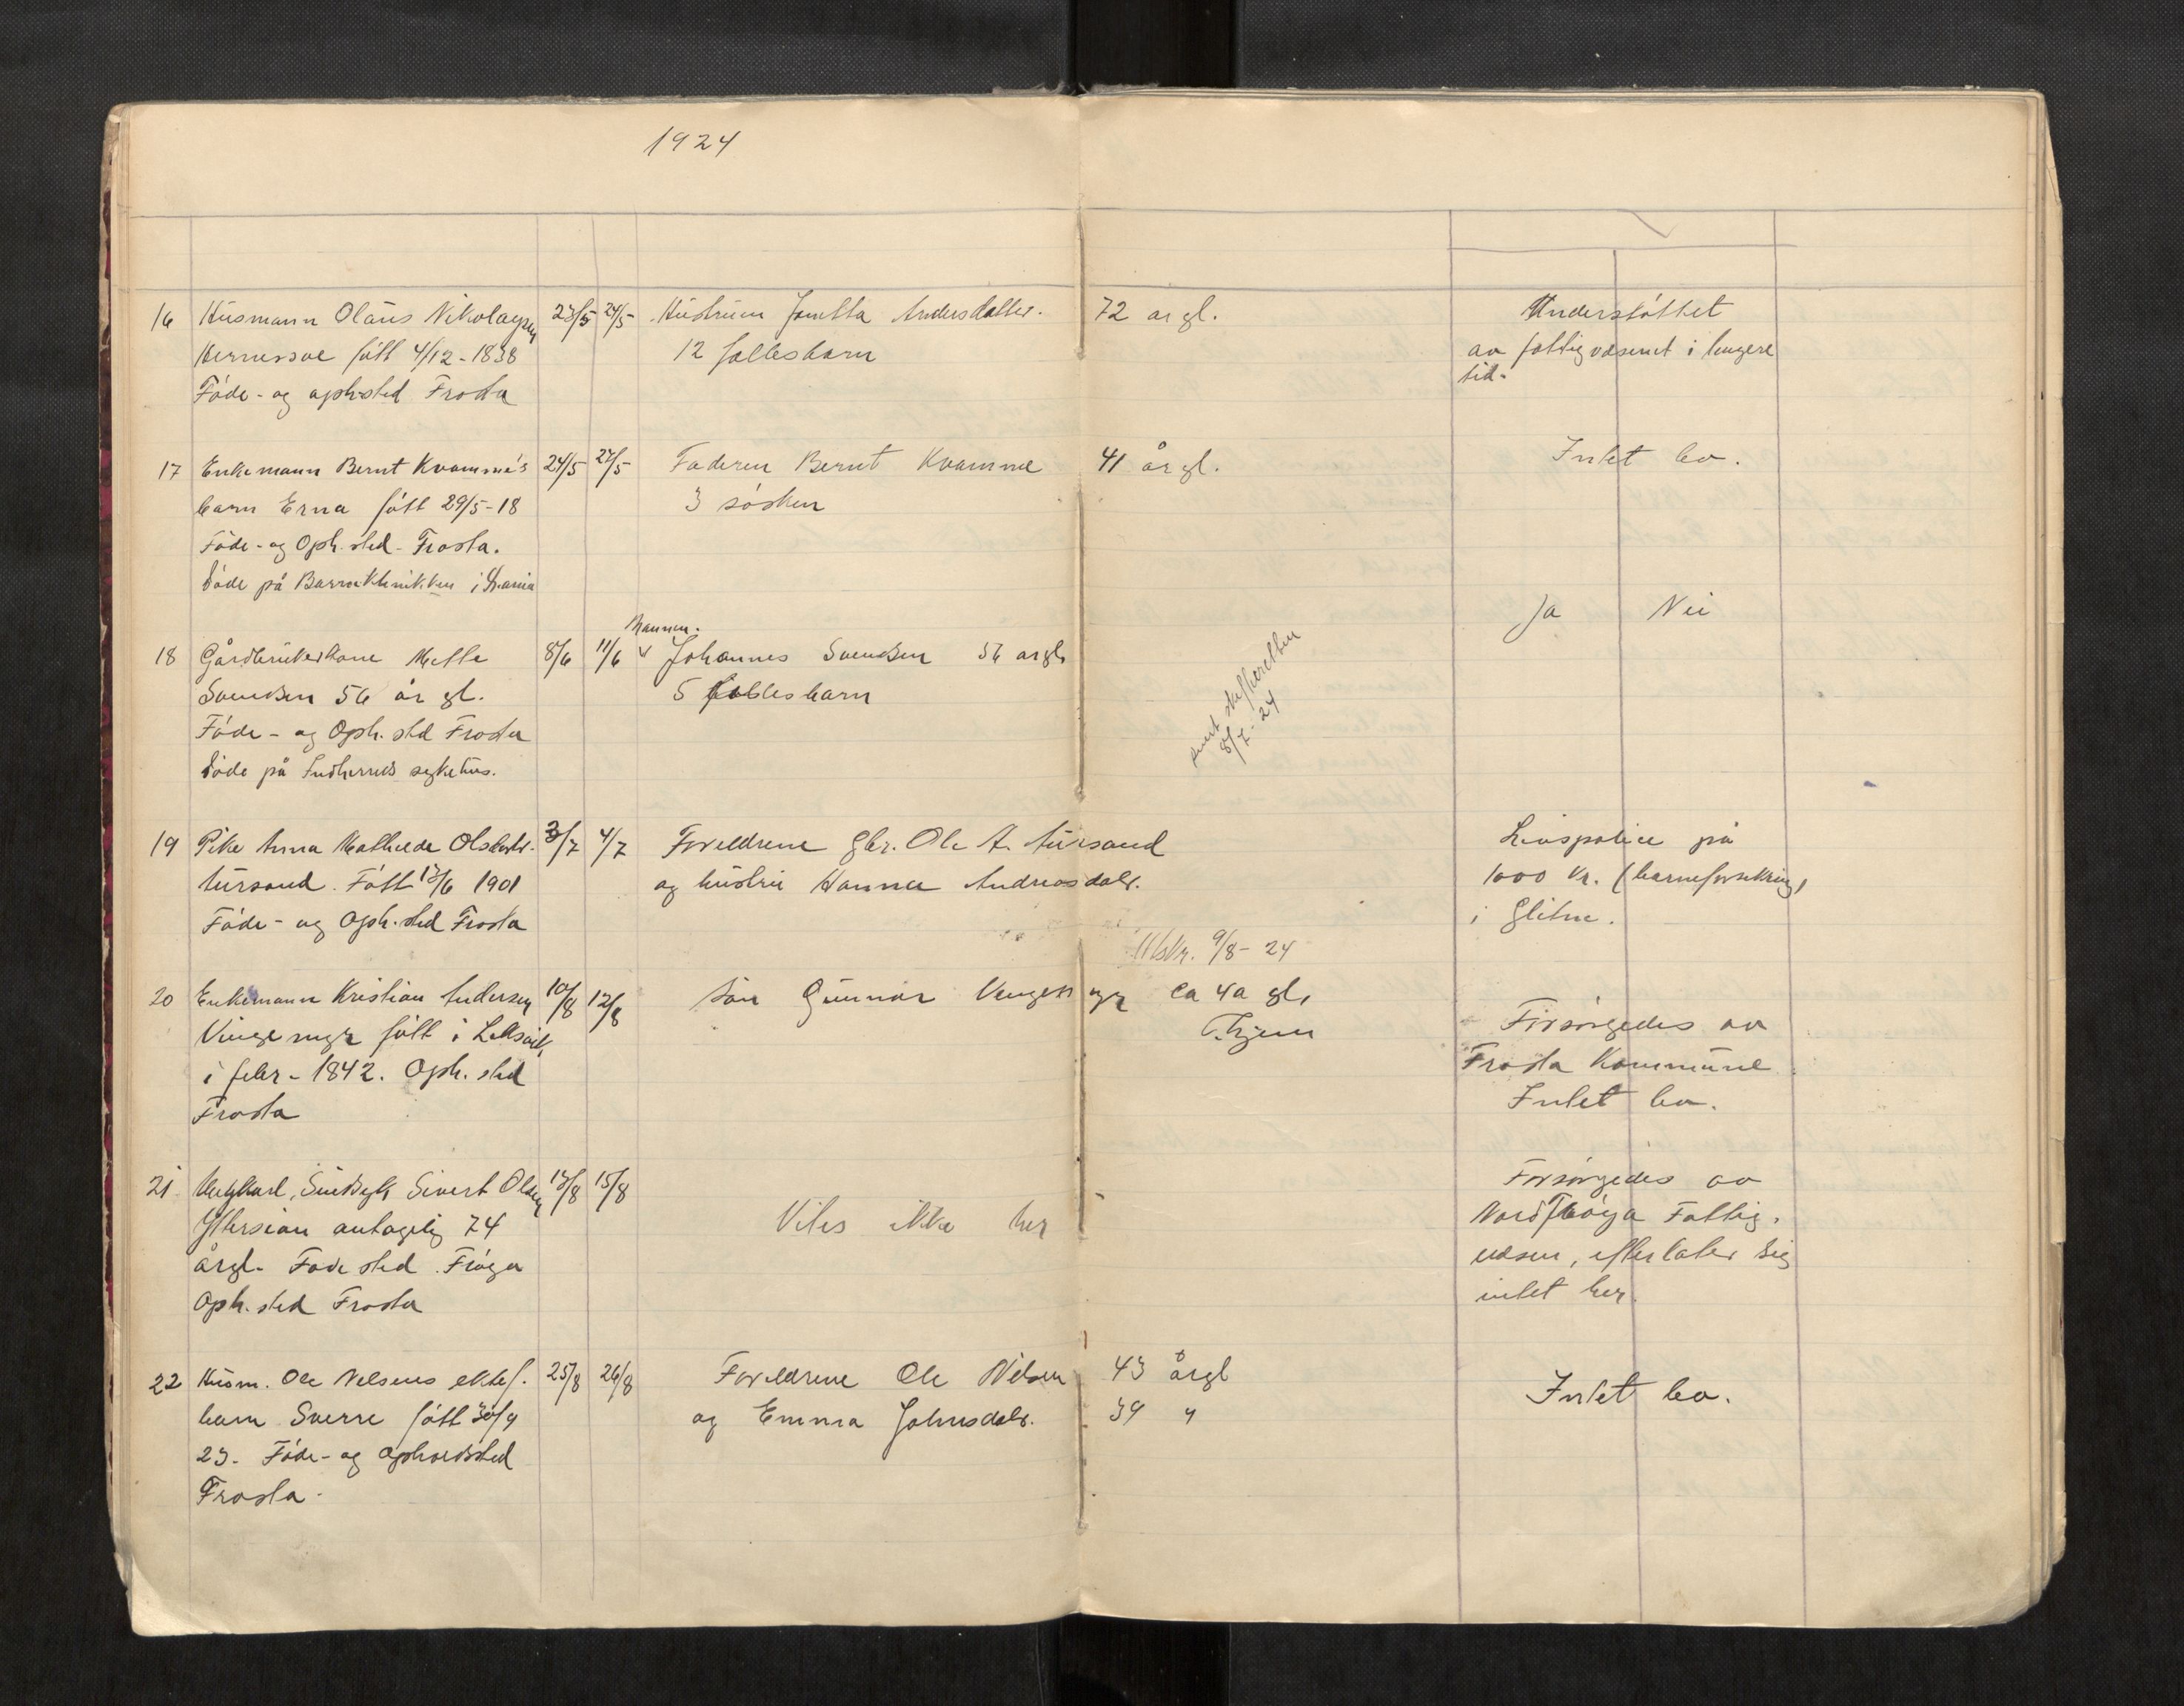 1924
16 Husmann Olaus Nikolaysen 23/5 24/5 Hustruen Jonetta Andersdatter. 72 år gl. Understøttet
født 4/12-1838 12 fellesbarn av fattigvæsenet i lengere
Føde- og oph.sted Frosta tid.
17 Enkemann Bernt Kvamme's 24/5 27/5 Faderen Bernt Kvamme 41 år gl. Intet bo.
barn Erna født 29/5-18 3 søsken
Føde- og Oph. sted - Frosta.
Døde på Barneklinikken i
Ja Nei
Mannen.
18 Gårdbrukerkone Mette 8/6 11/6 Johannes Svendsen 56 år gl.
Svendsen 56 år gl. 5 fellesbarn
Føde- og Oph. sted Frosta
Døde på Innherred sykehus.
skifteretten
8/7-24
19 Pike Anna Mathilde Olsdatr. 3/7 4/7 Foreldrene Gbr. Ole A. Aursand Livspolice på
Aursand. Født 13/6 1901 og hustru Hanna Andreasdatr. 1000 Kr. (barneforsikring)
Føde- og Oph. sted Frosta i Glitne.
Utskr. 9/8-24
20 Enkemann Kristian Andersen 10/8 12/8 Søn Gunnar Vengemyr ca 40 gl. Forsørgedes av
Vingemyr født i Leksvik T.hjem Frosta Kommune
i febr - 1842. Oph. sted Intet bo.
Frosta
21 Sivert Olsen 13/8 15/8 Vites ikke her Forsørgedes av
Yttersian antagelig 74 Nord Frøya Fattig-
årgl. Føde sted Frøya vesen, efterlater sig
Oph. sted Frosta intet her.
22 Husm. Ole Nelsens ektef. 25/8 26/8 Foreldrene Ole Nilsen 43 årgl Intet bo.
barn Sverre født 30/9 og Emma Johnsdatr. 39 "
23. Føde- og Opholdsted
Frosta.